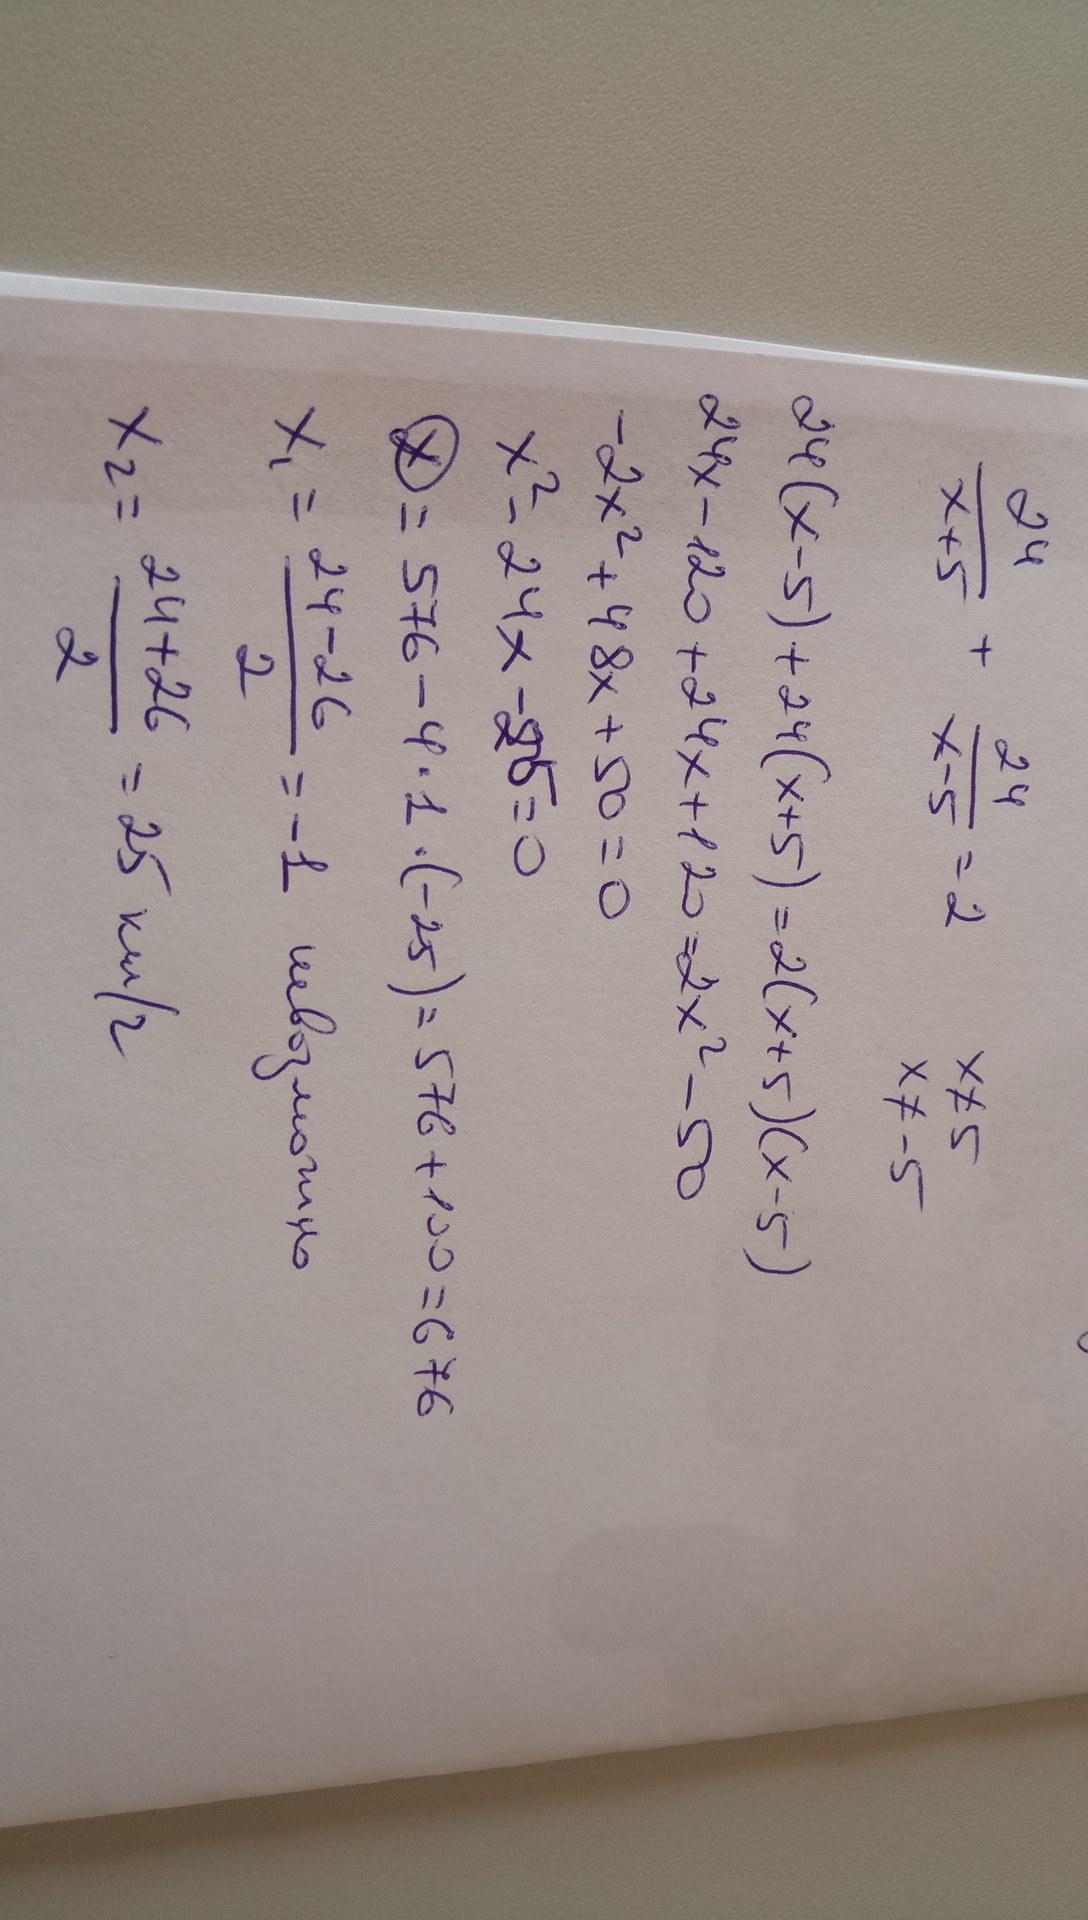 24/(x+5) + 24/(x-5) = 2 x≠5
x≠-5
24(x-5)+24(x+5)=2(x+5)(x-5)
24x-120+24x+120=2x²-50
-2x²+48x+50=0
x²-24x-25=0
x=576-4·1·(-25)=576+100=676
x₁=(24-26)/2=-1 невозможно
x₂=(24+26)/2=25 км/ч